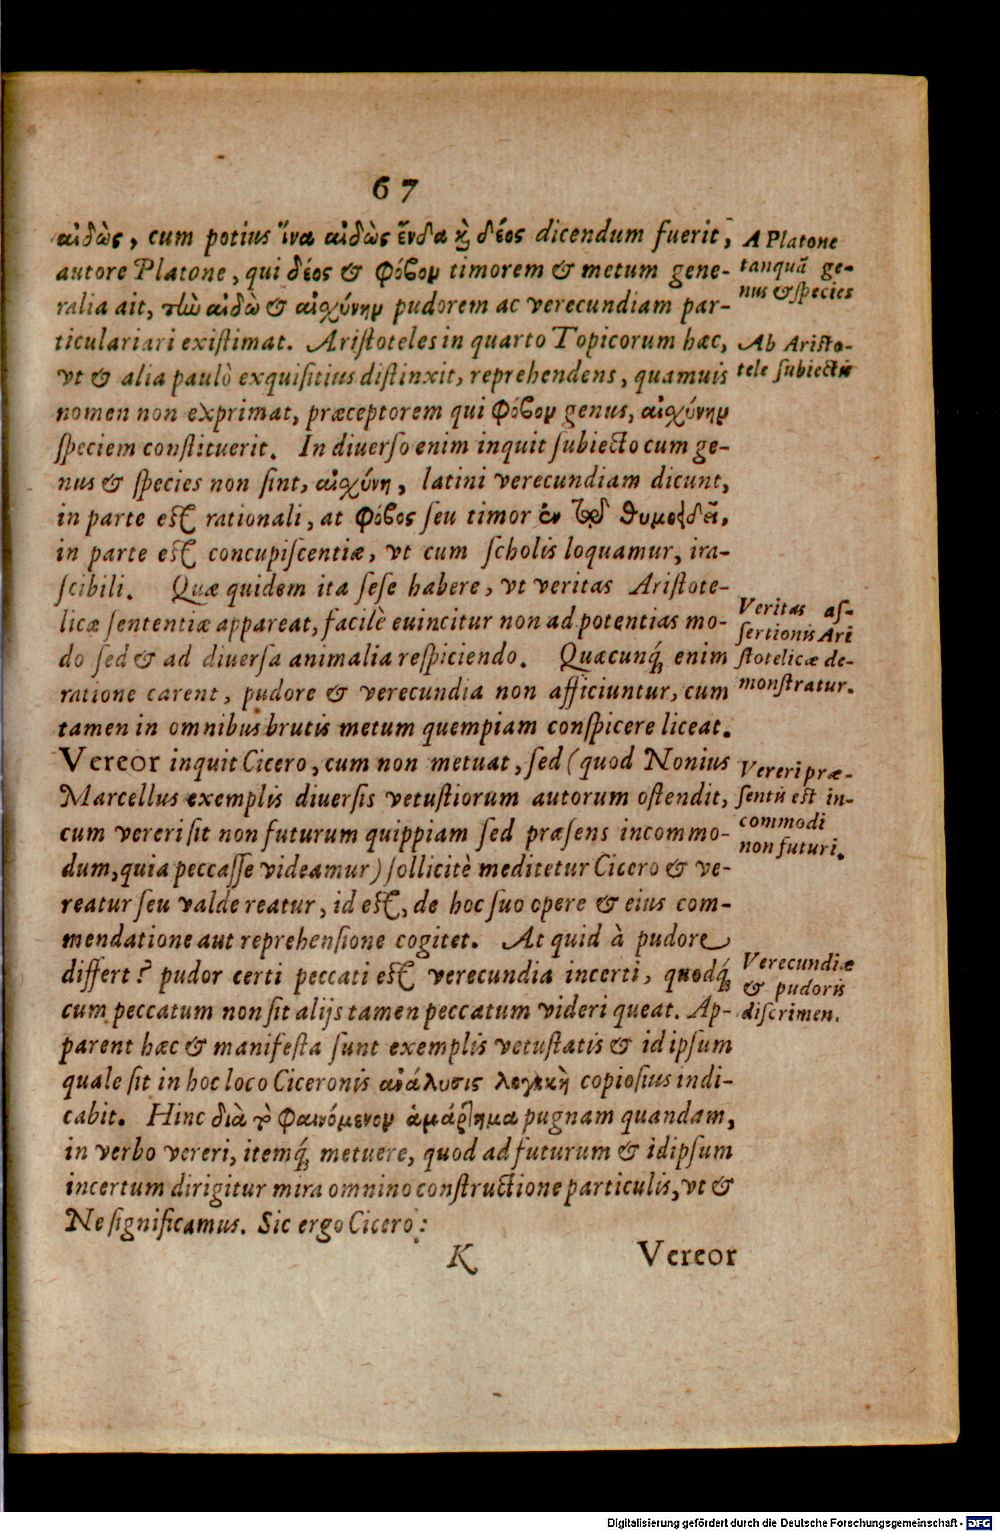 67
αἰδὼς, cum potius ἵνα αἰδὼς ἔνδα κὶ δέος dicendum fuerit,
autore Platone, qui δέος & φόβον timorem & metum gene-
ralia ait, τὼ αἰδὼ & αἰσχύνην pudorem ac verecundiam par-
ticulariari existimat. Aristoteles in quarto Topicorum hæc,
vt & alia paulò exquisitius distinxit, reprehendens, quamuis
nomen non exprimat, præceptorem qui φόβον genus, αἰσχύνην
speciem constituerit. In diuerso enim inquit subiecto cum ge-
nus & species non sint, αἰσχύνη, latini verecundiam dicunt,
in parte est rationali, at φόβος seu timor ἐν τῷ θυμοειδεῖ,
in parte est concupiscentiæ, vt cum scholis loquamur, ira-
scibili. Quæ quidem ita sese habere, vt veritas Aristote-
licæ sententiæ appareat, facilè euincitur non ad potentias mo-
do sed & ad diuersa animalia respiciendo. Quæcunq́ enim
ratione carent, pudore & verecundia non afficiuntur, cum
tamen in omnibus brutis metum quempiam conspicere liceat.
Vereor inquit Cicero, cum non metuat, sed (quod Nonius
Marcellus exemplis diuersis vetustiorum autorum ostendit,
cum vereri sit non futurum quippiam sed præsens incommo-
dum, quia peccasse videamur) sollicitè meditetur Cicero & ve-
reatur seu valde reatur, id est, de hoc suo opere & eius com-
mendatione aut reprehensione cogitet. At quid à pudore
differt? pudor certi peccati est verecundia incerti, quodq́
cum peccatum non sit alijs tamen peccatum videri queat. Ap-
parent hæc & manifesta sunt exemplis vetustatis & id ipsum
quale sit in hoc loco Ciceronis ἀνάλυσις λογικὴ copiosius indi-
cabit. Hinc διὰ τὸ φαινόμενον ἁμάρτημα pugnam quandam,
in verbo vereri, itemq́ metuere, quod ad futurum & idipsum
incertum dirigitur mira omnino constructione particulis, vt &
Ne significamus. Sic ergo Cicero:
K Vereor
A Platone
tanquã ge-
nus & species
Ab Aristo-
tele subiectis
Veritas as-
sertionis Ari
stotelicæ de-
monstratur.
Vereri præ-
sentis est in-
commodi
non futuri.
Verecundiæ
& pudoris
discrimen.
Digitalisierung gefördert durch die Deutsche Forschungsgemeinschaft - DFG